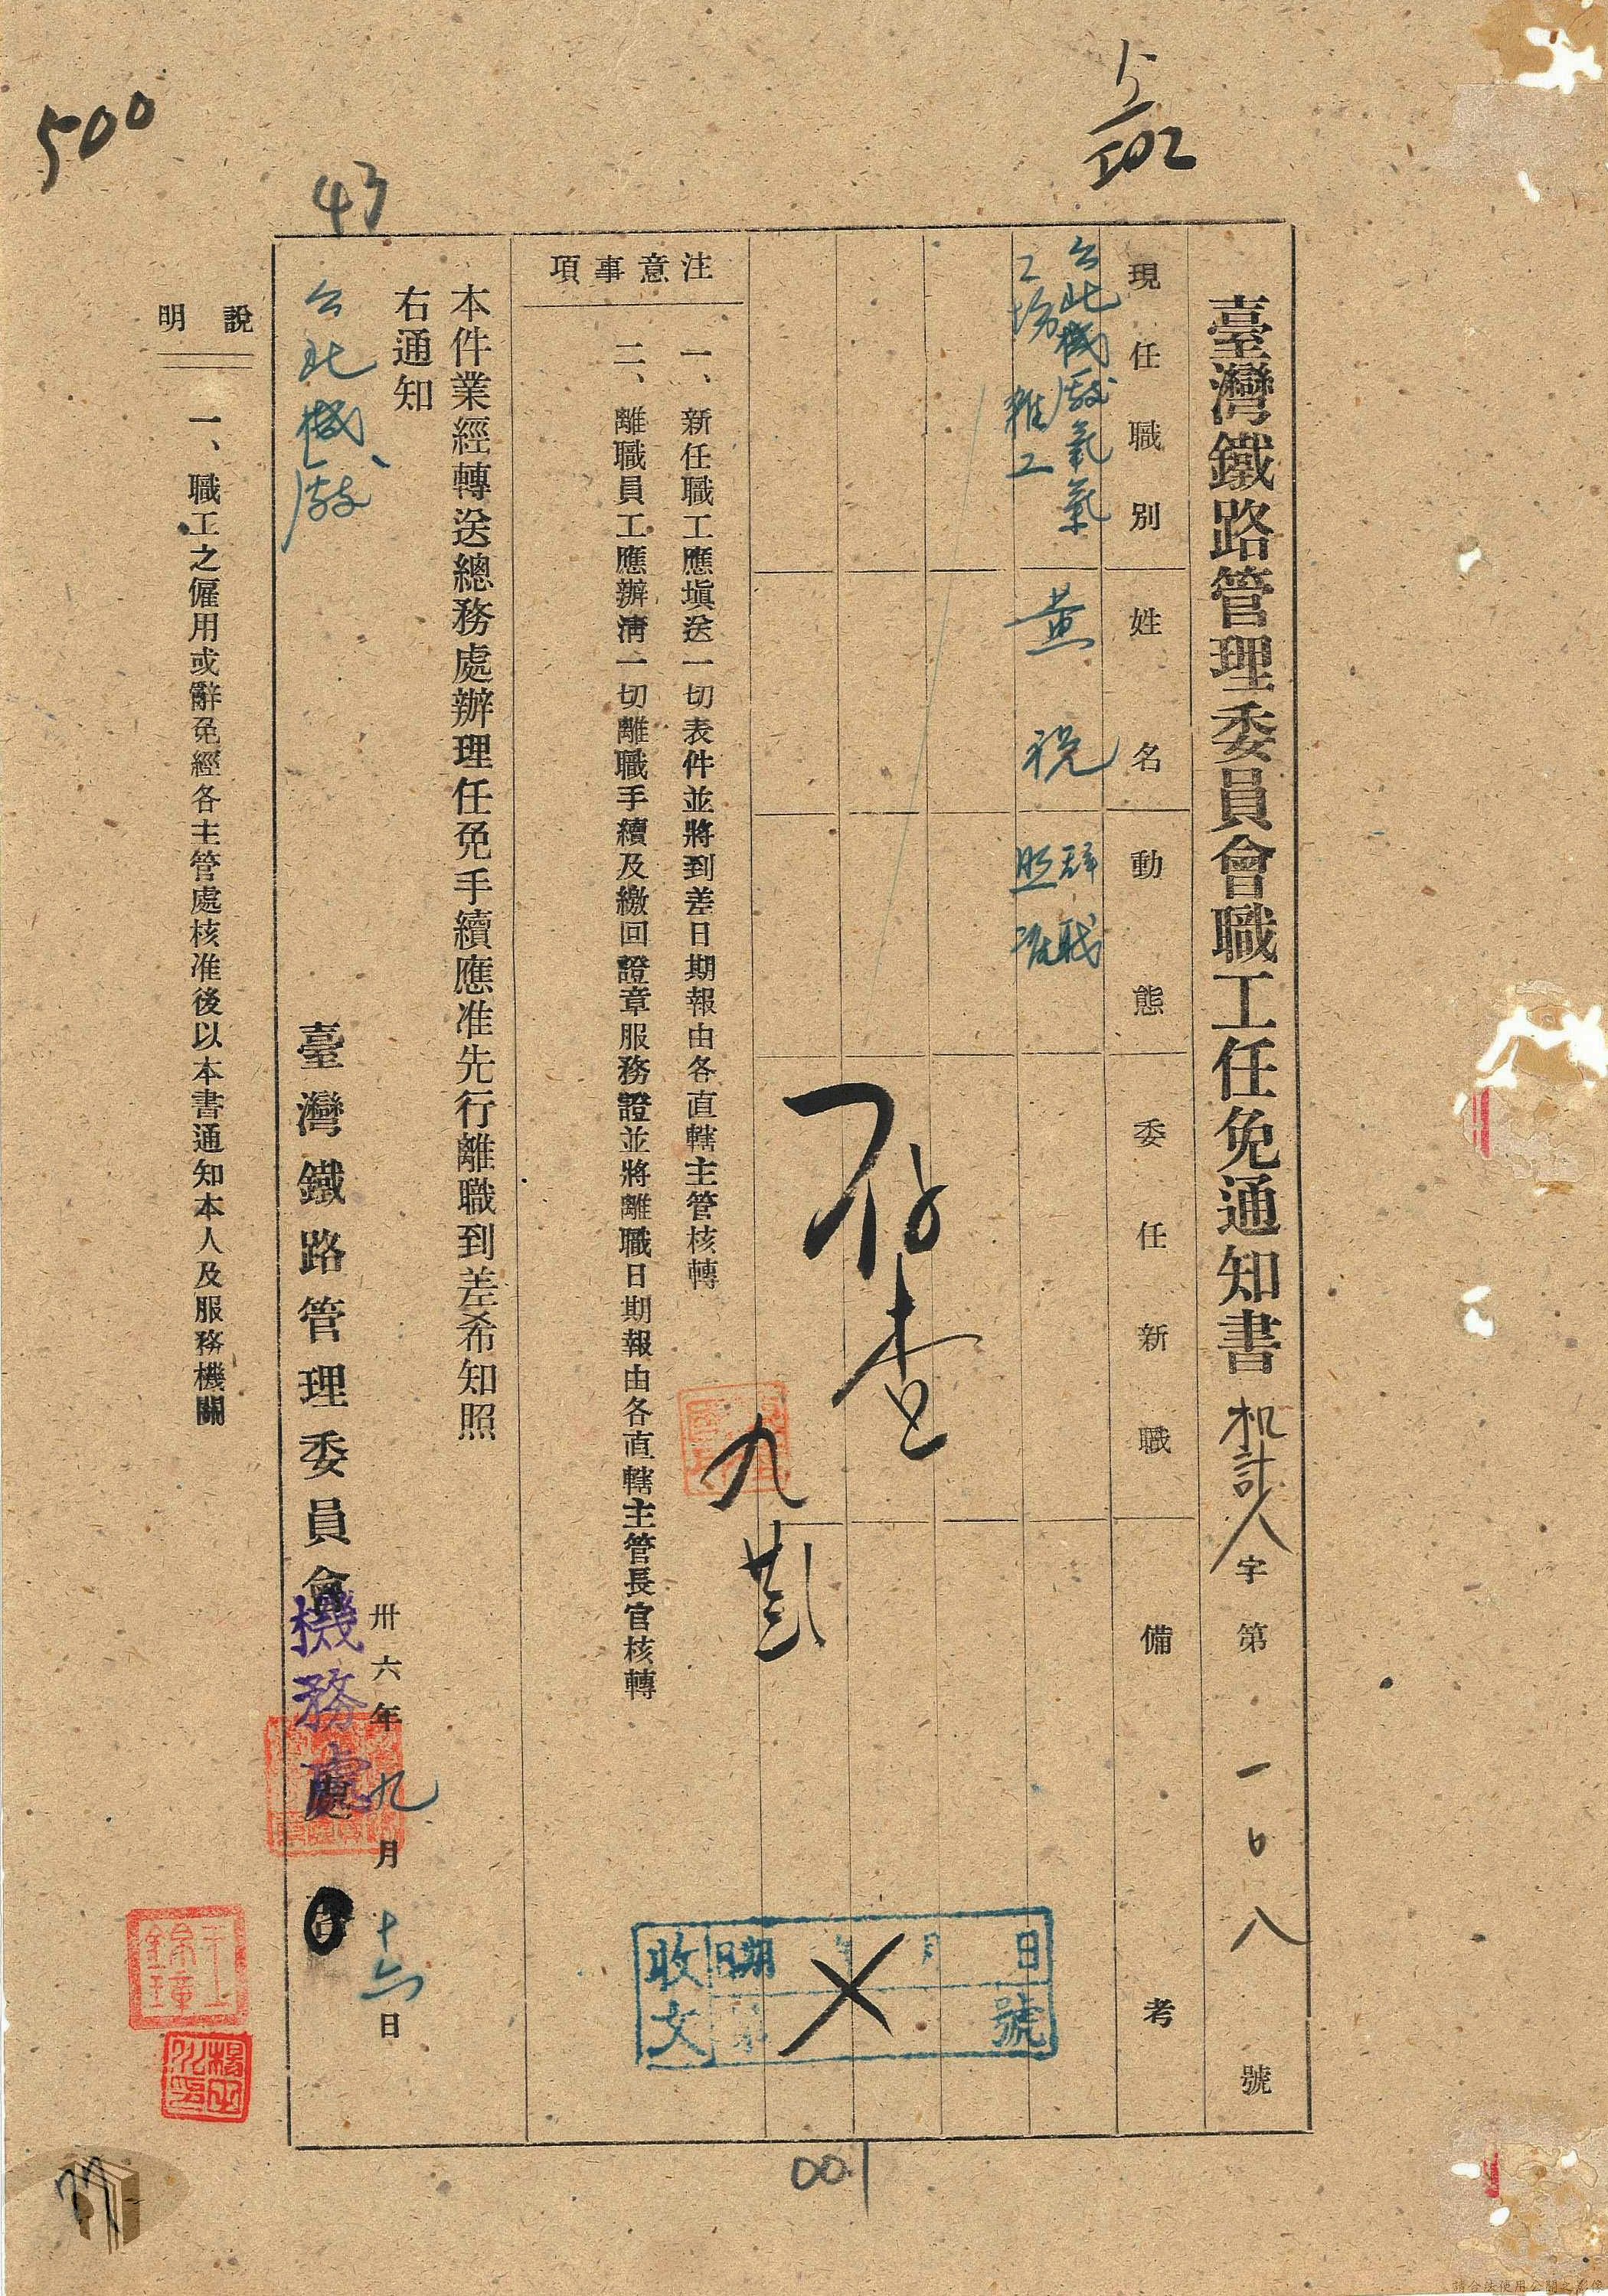 臺灣鐵路管理委員會職工任免通知書 机計人字第一〇八號
現任職別 姓名 動態 委任新職 備考
台北機廠氧氣
工場 雜工 黃稅 辭職 照准
存查
九
注意事項
一、新任職工應填送一切表件並將到差日期報由各直轄主管核轉
二、離職員工應辦清一切離職手續及繳回證章服務證並將離職日期報由各直轄主管長官核轉
本件業經轉送總務處辦理任免手續應准先行離職到差希知照
右通知
台北機廠
臺灣鐵路管理委員會機務處
卅六年九月十六日
說明
一、職工之僱用或辭免經各主管處核准後以本書通知本人及服務機關
收文 日期 年 月 日
號
500
43
001
請合法使用公開之影像